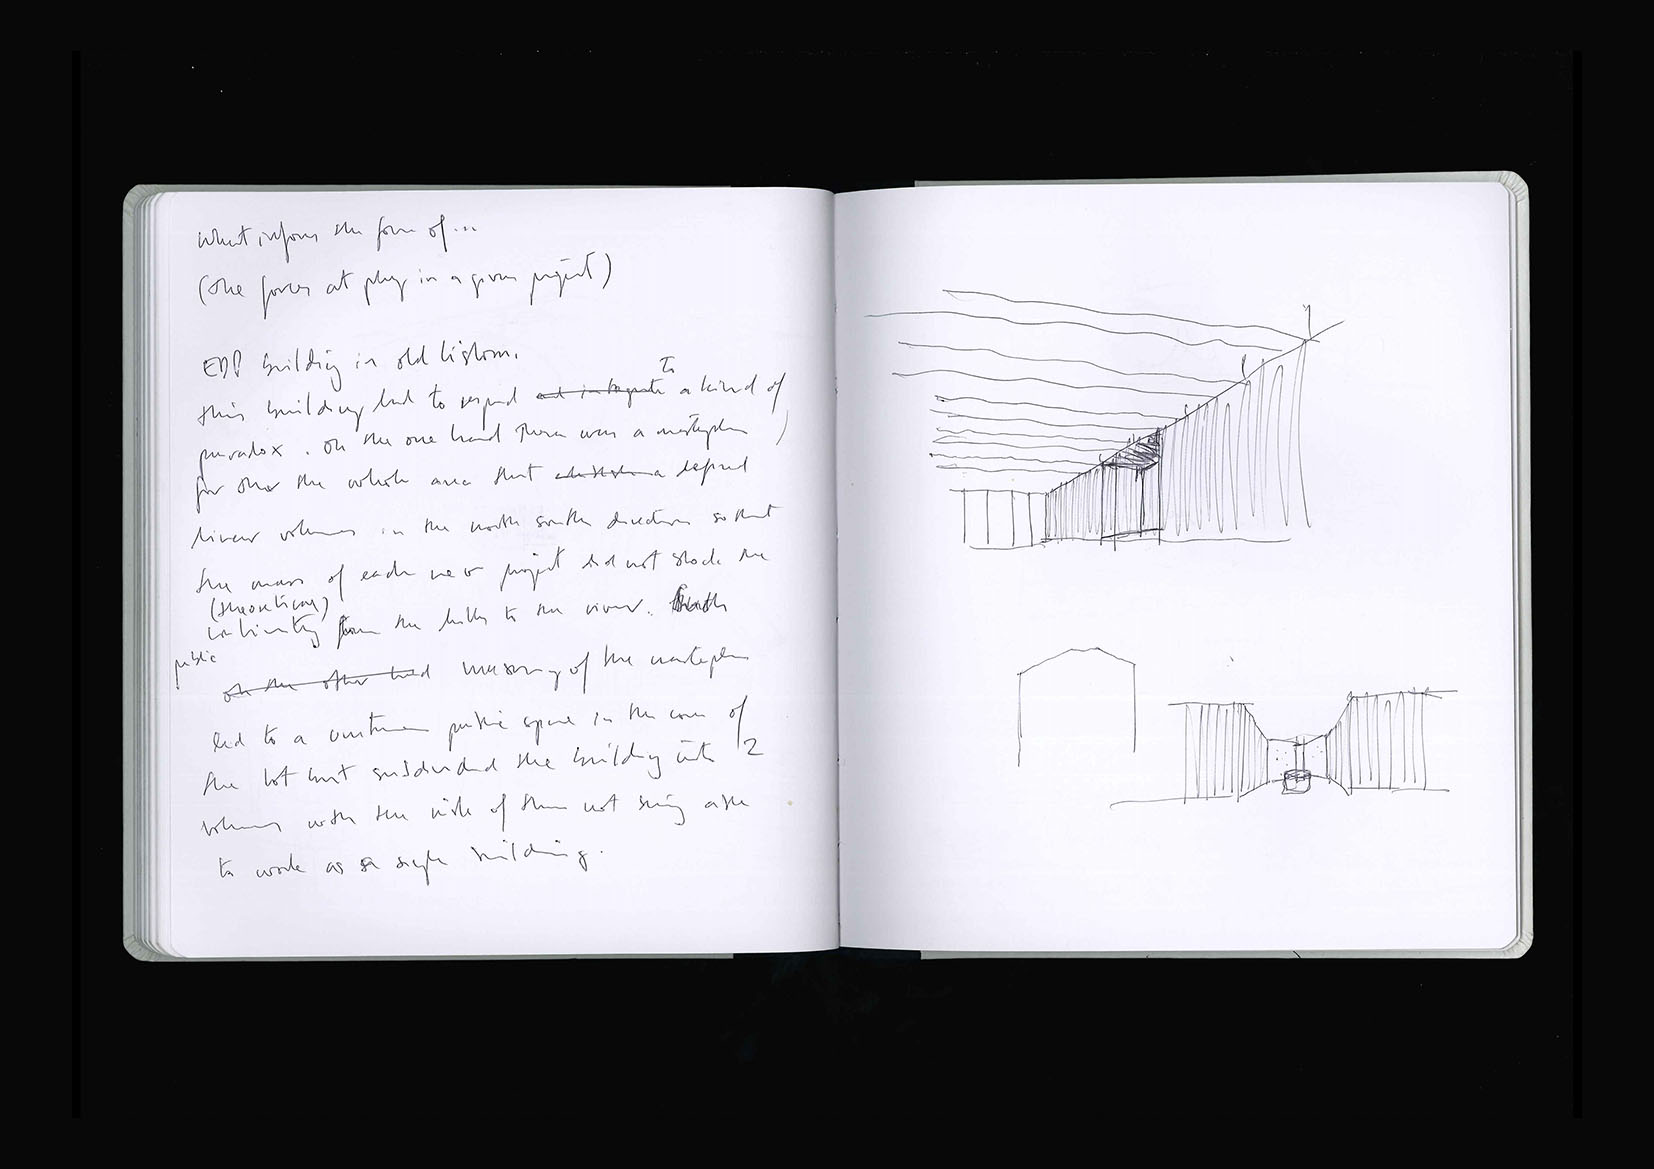 What informs the form of...
(the forces at play in a given project)
EDP building in old Lisbon.
this building had to respond to a kind of
paradox. On the one hand there was a masterplan
for the whole area that defined
linear volumes in the north south direction so that
the mass of each new project did not block the
(theoretical)
continuity from the hills to the river.
public
on the other hand massing of the masterplan
led to a public space in the core of
the lot but subdivided the building into 2
volumes with the risk of them not being able
to work as a single building.